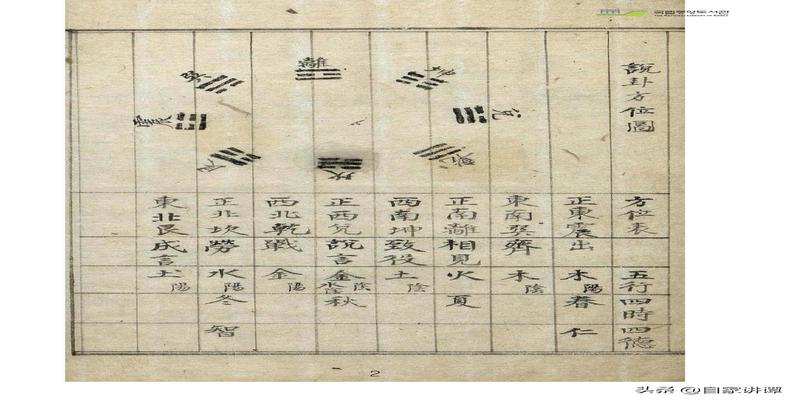 국립중앙도서관
THE NATIONAL LIBRARY OF KOREA
說卦方位圖
離
坤
兌
乾
坎
艮
震
巽
方位表 五行四時四德
正東震出 木陽春 仁
東南巽齊 木陰
正南離相見火 夏
西南坤致役土陰
正西兌說言金陰 秋
西北乾戰 金陽
正北坎勞 水陽冬 智
東北艮成言土陽
2
头条 @自家讲谭